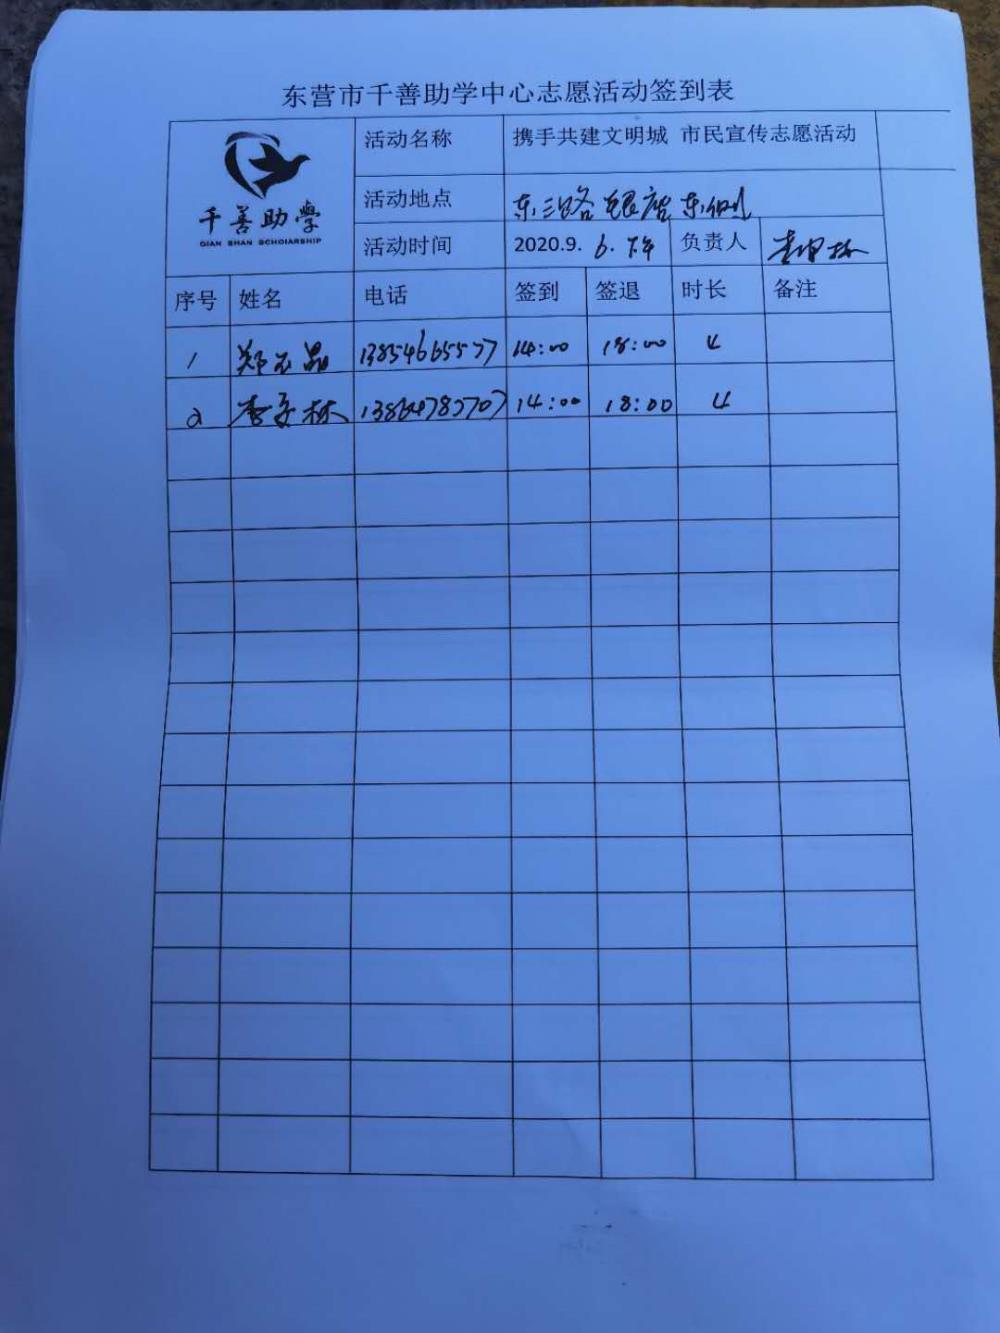 东营市千善助学中心志愿活动签到表
千善助學
QIAN SHAN SCHOIARSHIP
活动名称 携手共建文明城 市民宣传志愿活动
活动地点 东三路银座东侧
活动时间 2020.9. 6. 下午 负责人
序号 姓名 电话 签到 签退 时长 备注
1 郑 晶 13854665577 14:00 18:00 4
2 李 林 14:00 18:00 4